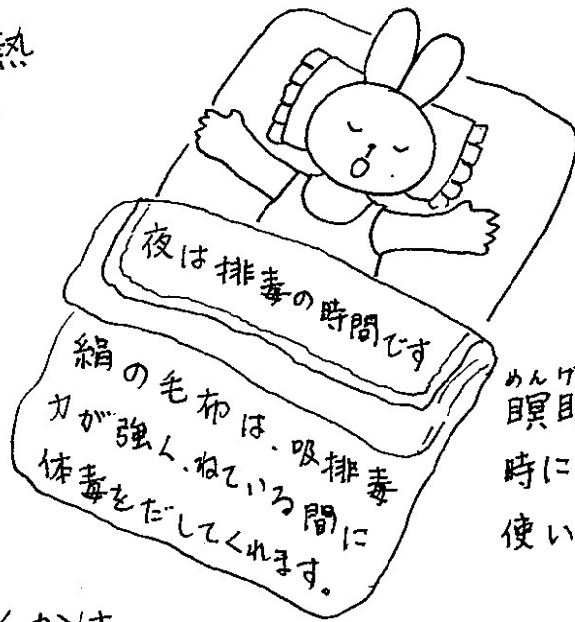 熱
夜は排毒の時間です
絹の毛布は、吸排毒
力が強く、ねている間に
体毒をだしてくれます。
めんげ
瞑眩
時に
使い